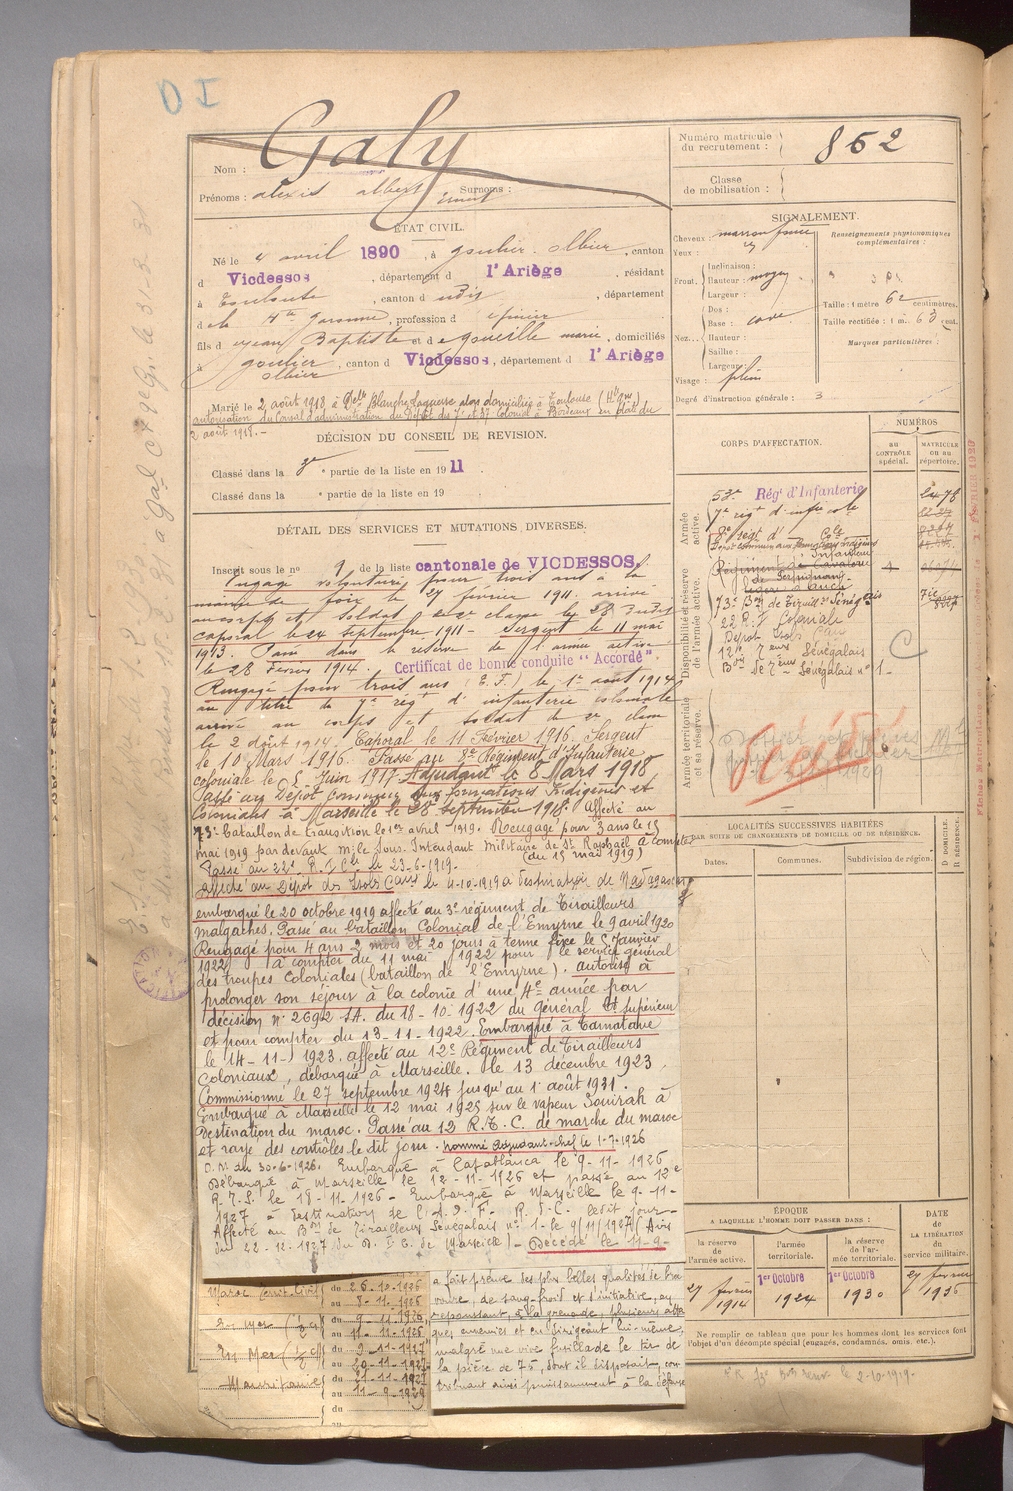 D I
Nom : Galy
Prénoms : alexis albert Ernest Surnoms :
Numéro matricule du recrutement : 862
Classe de mobilisation :
ÉTAT CIVIL.
Né le 4 avril 1890, à goulier-olbier, canton
d Vicdessos, département d l'Ariège, résidant
à Toulouse, canton d udit, département
d e la Hte garonne, profession d épicier
fils d e Jean Baptiste et d e gouville marie, domiciliés
à goulier olbier, canton d Vicdessos, département d l'Ariège
Marié le 2 août 1918 à Delle Blanche Laqueuse alors domiciliée à Toulouse (Hte Gne)
autorisation du Conseil d'administration du Dépôt des 7e et 37 Colonial à Bordeaux en date du
2 août 1918.-
SIGNALEMENT.
Cheveux : marron foncé
Yeux :
Front. Inclinaison :
Hauteur : moyen
Largeur :
Nez. Dos :
Base : cave
Hauteur :
Saillie :
Largeur :
Visage : plein
Renseignements physionomiques complémentaires :
Taille : 1 mètre 62 centimètres.
Taille rectifiée : 1 m. 63 cent.
Marques particulières :
Degré d'instruction générale : 3
DÉCISION DU CONSEIL DE REVISION.
Classé dans la 3e partie de la liste en 1911.
Classé dans la partie de la liste en 19
DÉTAIL DES SERVICES ET MUTATIONS DIVERSES.
Inscrit sous le no de la liste cantonale de VICDESSOS.
Engagé volontaire pour trois ans à la
mairie de foix le 27 février 1911. arrivé
au corps et soldat de 2e classe le 28 dudit
caporal le 24 septembre 1911 - Sergent le 11 mai
1913. Passé dans la réserve de l'armée active
le 28 Février 1914. Certificat de bonne conduite "Accordé".
Rengagé pour trois ans (E.F.) le 1er août 1914
au titre du 7e régt d'infanterie coloniale
arrivé au corps et soldat de 2e classe
le 2 août 1914. Caporal le 11 Février 1916. Sergent
le 10 Mars 1916. Passé au 8e Régiment d'Infanterie
coloniale le 5 Juin 1917. Adjudant le 8 Mars 1918
Passé au Dépôt commun aux formations Indigènes et
Coloniales à Marseille le 28 septembre 1918. Affecté au
73e Bataillon de transition le 1er avril 1919. Rengagé pour 3 ans le 15
mai 1919 par devant Mr le Sous-Intendant Militaire de St Raphaël à compter
(du 15 mai 1919)
Passé au 22e R.I.Cle le 23-6-1919.
Affecté au Dépôt des Isolés Caux le 4-10-1919 à destination de Madagascar
embarqué le 20 octobre 1919 affecté au 3e régiment de Tirailleurs
malgaches. Passé au bataillon Colonial de l'Emyrne le 9 avril 1920
Rengagé pour 4 ans 2 mois et 20 jours à terme fixe le 5 Janvier
1922 à compter du 11 mai 1922 pour le service général
des troupes Coloniales (bataillon de l'Emyrne). autorisé à
prolonger son séjour à la colonie d'une 4e année par
décision no 2692 S.A. du 18-10-1922 du Général Ct Supérieur
et pour compter du 13-11-1922. Embarqué à Tamatave
le 14-11-1923. affecté au 12e Régiment de Tirailleurs
Coloniaux, débarqué à Marseille. le 13 décembre 1923
Commissionné le 27 septembre 1924 jusqu'au 1er août 1931.
Embarqué à Marseille le 12 mai 1925 sur le vapeur Souirah à
destination du maroc. Passé au 12 R.T.C. de marche du maroc
et rayé des contrôles le dit jour. nommé Adjudant-chef le 1-7-1926
O.M. du 30-6-1926. Embarqué à Casablanca le 9-11-1926
Débarqué à Marseille le 12-11-1926 et passé au 12e
R.T.S. le 18-11-1926 - Embarqué à Marseille le 9-11-
1927 à destination de l'A.O.F. R.d.C. ledit jour -
Affecté au Bon de Tirailleurs Sénégalais no 1- le 9/11/1927 (Avis
du 22-12-1927 du D.I.C. de Marseille) - Décédé le 11-9-
CORPS D'AFFECTATION.
NUMÉROS
au contrôle spécial.
matricule ou au répertoire.
Armée active.
53e Régt d'Infanterie 2478
7e régt d'infie cole
8e régt d' Cole
Dépôt commun aux formations indigènes
Disponibilité et réserve de l'armée active.
Régiment de Cavalerie
73e Bon de Tirailrs Sénégalais
22 R.I Coloniale
Dépôt Isolés Caux
12e Teurs Sénégalais
Bon de Teurs Sénégalais no 1-
C
Armée territoriale et sa réserve.
décédé
LOCALITÉS SUCCESSIVES HABITÉES
PAR SUITE DE CHANGEMENTS DE DOMICILE OU DE RÉSIDENCE.
Dates.
Communes.
Subdivision de région.
D DOMICILE.
R RÉSIDENCE.
ÉPOQUE
A LAQUELLE L'HOMME DOIT PASSER DANS :
la réserve de l'armée active.
l'armée territoriale.
la réserve de l'armée territoriale.
DATE de LA LIBÉRATION du service militaire.
27 février 1914
1er Octobre 1924
1er Octobre 1930
27 février 1936
Ne remplir ce tableau que pour les hommes dont les services font
l'objet d'un décompte spécial (engagés, condamnés, omis, etc.).
Maroc
du 26-10-1926
au 8-11-1926
En Mer
du 9-11-1926
au 11-11-1926
En Mer
du 9-11-1927
au 20-11-1927
Mauritanie
du 21-11-1927
au 11-9-1929
du
au
a fait preuve des plus belles qualités de bra
voure, de sang-froid et d'initiative, en
repoussant, à la grenade, plusieurs atta
ques ennemies et en dirigeant lui-même,
malgré une vive fusillade le tir de
la pièce de 75, dont il disposait, con
tribuant ainsi puissamment à la défense